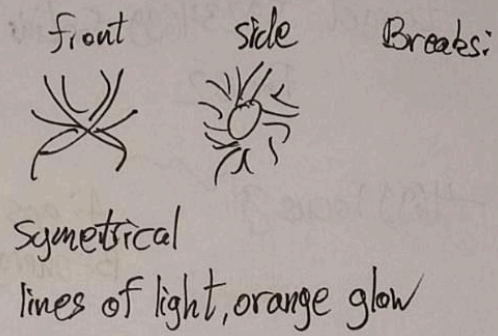 front side Breaks:
Symetrical
lines of light, orange glow